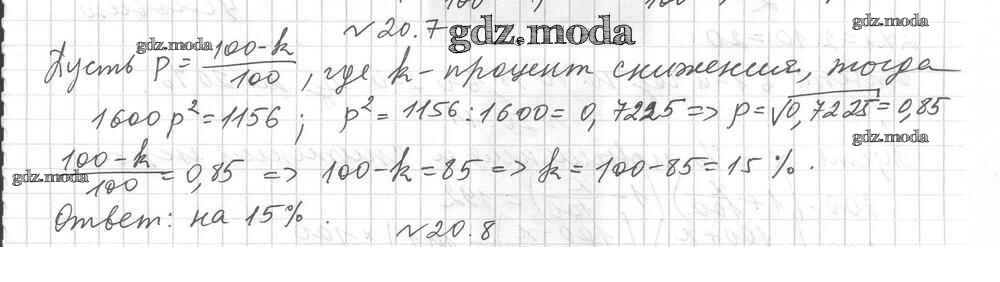 №20.7
gdz.moda gdz.moda
Пусть p = 100-k/100, где k-процент снижения, тогда
1600p²=1156; p²=1156:1600=0,7225 => p=√0,7225=0,85
gdz.moda
gdz.moda
100-k/100=0,85 => 100-k=85 => k=100-85=15%.
gdz.moda
Ответ: на 15%.
№20.8